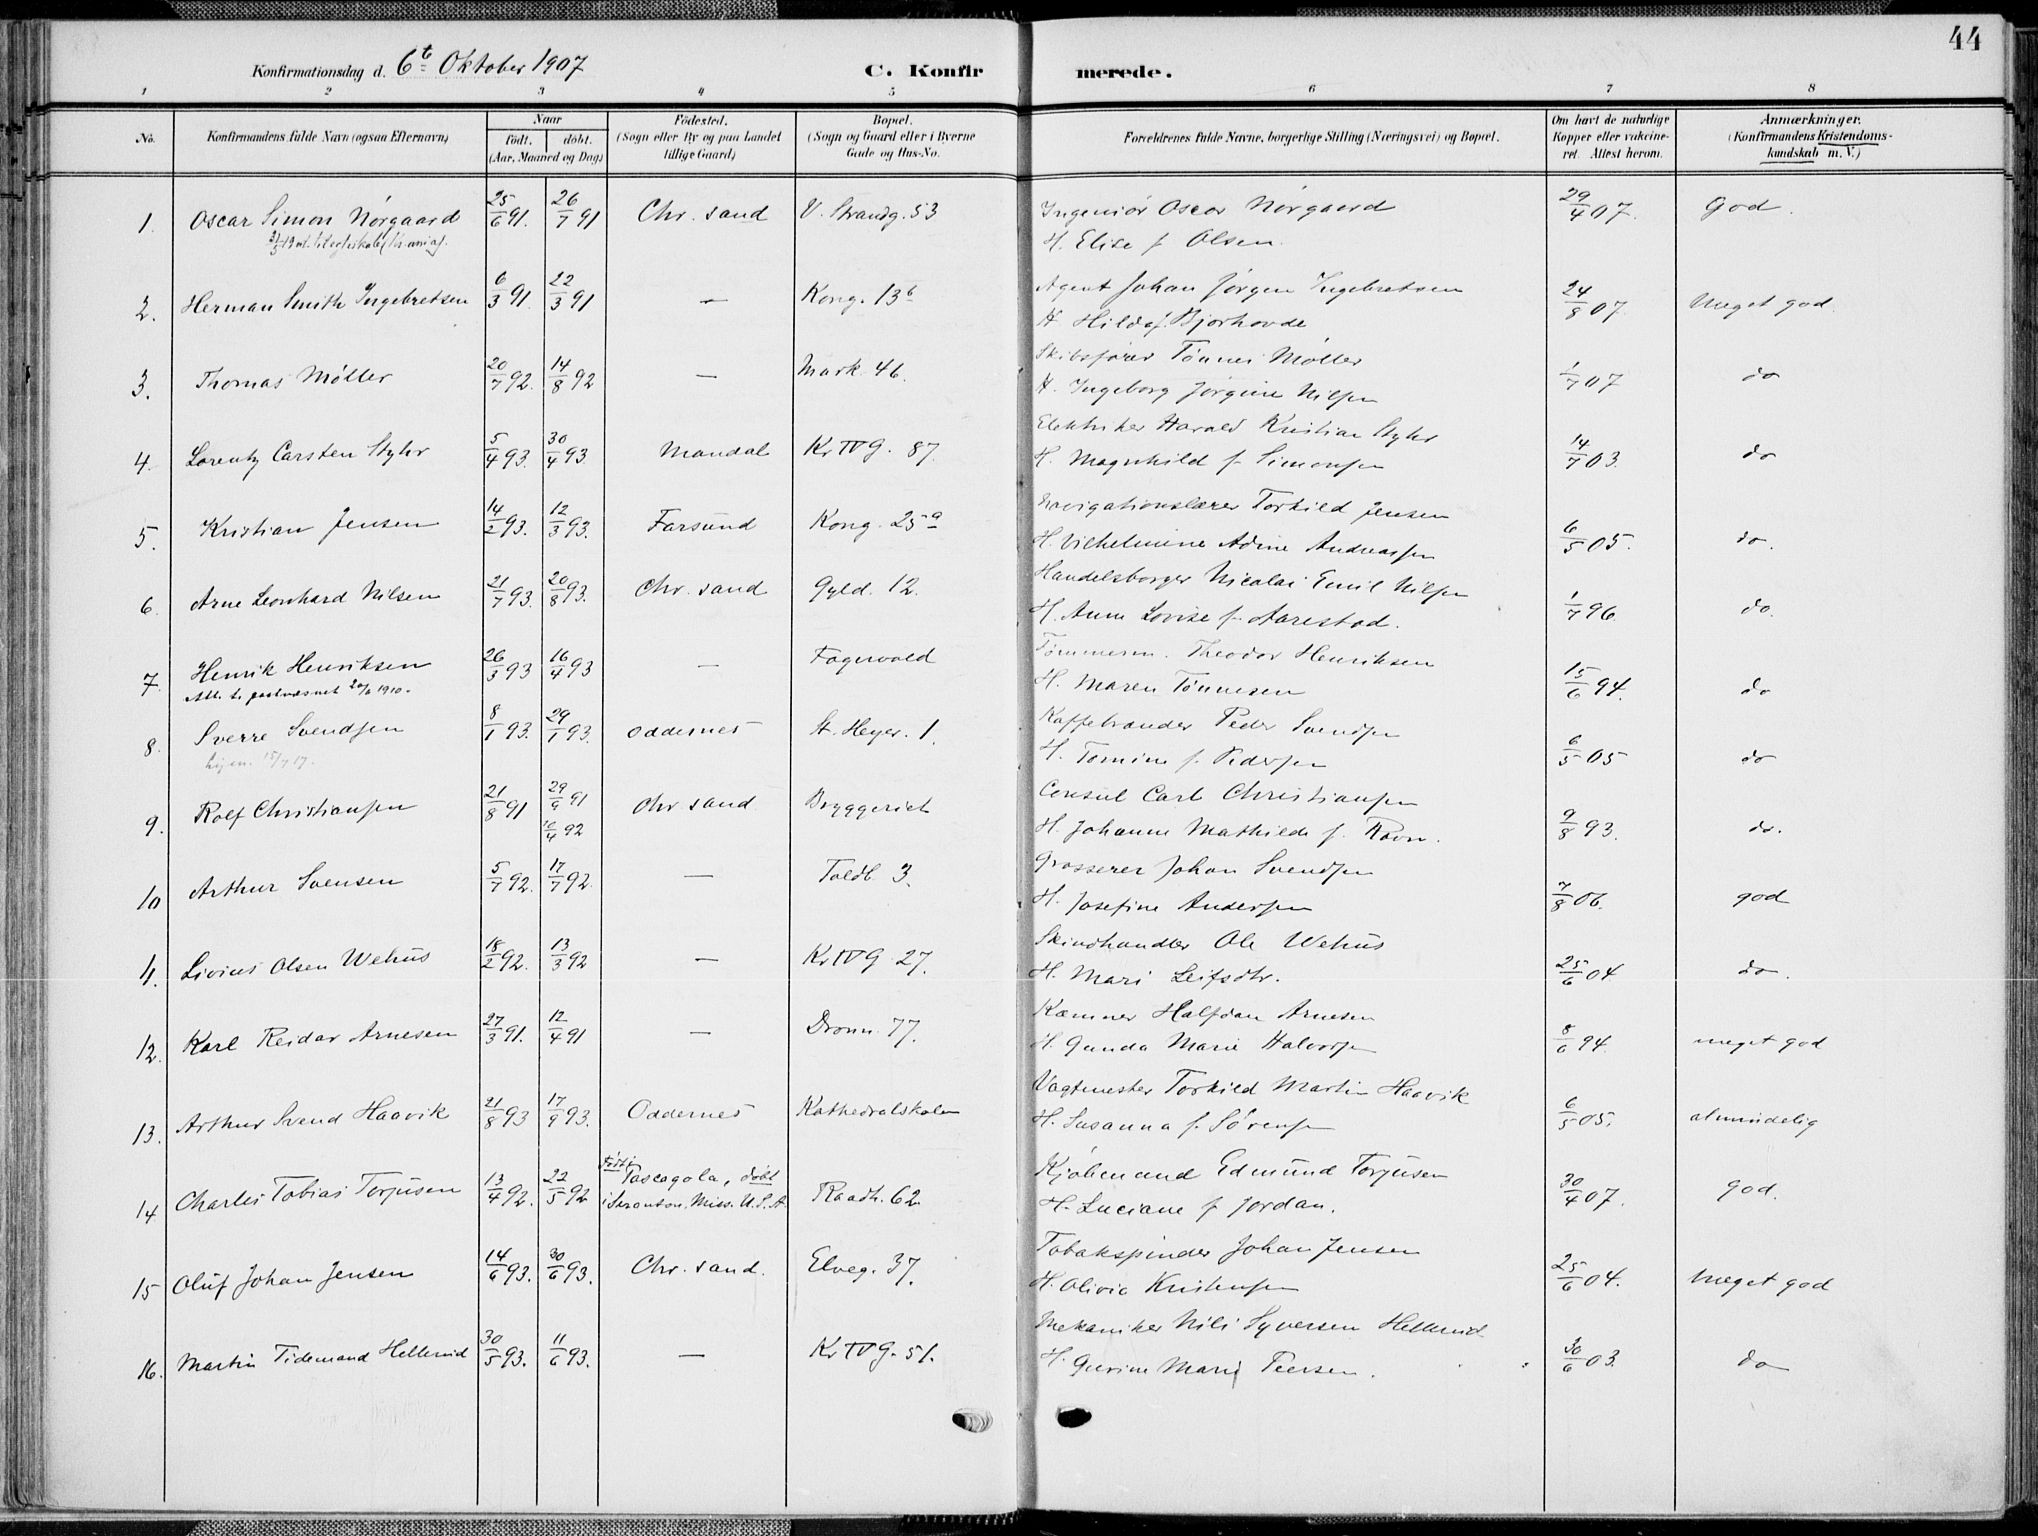 44
Konfirmationsdag d. 6t Oktober 1907
C. Konfir merede.
1 2 3 4 5 6 7 8
No. Konfirmandens fulde Navn (ogsaa Efternavn) Naar födt. döbt. (Aar, Maaned og Dag) Födested. (Sogn eller By og paa Landet tillige Gaard) Bopæl. (Sogn og Gaard eller i Byerne Gade og Hus-No. Forældrenes fulde Navne, borgerlige Stilling (Næringsvei) og Bopæl. Om havt de naturlige Kopper eller vakcineret. Attest herom. Anmærkninger. (Konfirmandens Kristendomskundskab m. V.)
1. Oscar Simon Nørgaard 25/6 91. 26/7 91 Chr. sand V. Strandg. 53 Ingeniør Oscar Nørgaard 29/4 07. God.
H. Elise f. Olsen.
2. Herman Smith Ingebretsen 6/3 91. 22/3 91 — Kong. 13b Agent Johan Jørgen Ingebretsen 24/8 07. Meget god.
H Hilda f. Bjorhovde
3. Thomas Møller 20/7 92. 14/8 92 — Mark. 46. Skibsfører Tønnes Møller 1/7 07 do
H. Ingeborg Jørgine Nilsen
4. Lorentz Carsten Styhr 5/4 93. 30/4 93. Mandal Kr IV G. 87. Elektriker Harald Kristian Styhr 14/7 03. do
H. Magnhild f. Simonsen
5. Kristian Jensen 14/2 93. 12/3 93. Farsund Kong. 25a Navigationslærer Torkild Jensen 6/5 05. do.
H. Vilhelmine Adine Andreassen
6. Arne Leonhard Nilsen 21/7 93. 20/8 93. Chr. sand Gyld. 12. Handelsborger Nicolai Emil Nilsen 1/7 96. do.
H. Anne Lovise f. Aarestad.
7. Henrik Henriksen 26/3 93 16/4 93 — Fagervold Tømmerm. Theodor Henriksen 15/6 94. do
H. Maren Tønnesen
8. Sverre Svendsen 8/1 93. 29/1 93. Oddernes St. Heyer. 1. Kaffebrænder Peder Svendsen 6/5 05 do
H. Tomine f. Pedersen
9. Rolf Christiansen 21/8 91 29/9 91 10/4 92 Chr. sand Bryggeriet Consul Carl Christiansen 9/8 93. do.
H. Johanne Mathilde f. Ravn.
10 Arthur Svensen 5/7 92. 17/7 92. — Toldb. 3. Grosserer Johan Svendsen 7/8 06. god
H. Josefine Andersen
11. Livius Olsen Wehus 18/2 92. 13/3 92 — Kr IV G 27. Skindhandler Ole Wehus 25/6 04 do.
H. Mari Leifsdtr.
12. Karl Reidar Arnesen 27/3 91. 12/4 91 — Dronn. 77. Kæmner Halfdan Arnesen 8/6 94. meget god
H. Gunda Marie Halvorsen
13. Arthur Svend Haavik 21/8 93 17/9 93. Oddernes Kathedralskolen Vagtmester Torkild Martin Haavik 6/5 05. almindelig
H. Susanna f. Sørensen
14 Charles Tobias Torjusen 13/4 92. 22/5 92 Født i Pascagola, døbt i Scranton. Miss. U.S.A. Raadh. 62. Kjøbmand Edmund Torjusen 30/4 07. god.
H. Luciane f. Jordan.
15 Oluf Johan Jensen 14/6 93. 30/6 93. Chr. sand. Elveg. 37. Tobakspinder Johan Jensen 25/6 04. Meget god
H. Olivia Kristensen
16. Martin Tidemand Hellerud 30/5 93. 11/6 93. — Kr IV G. 51. Mekaniker Nils Syversen Hellerud 30/6 03. do
H. Gurine Marie Peersen.